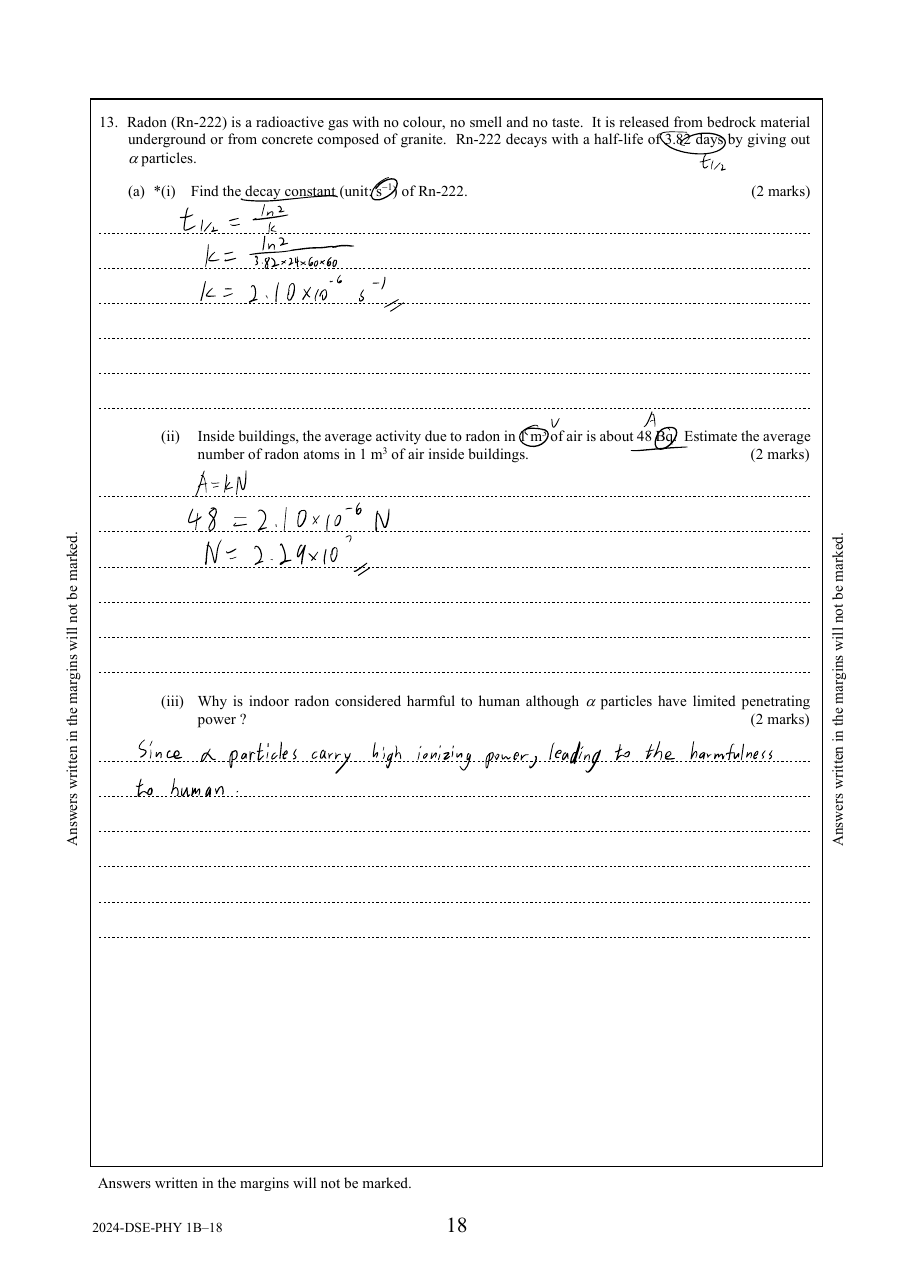 13. Radon (Rn-222) is a radioactive gas with no colour, no smell and no taste. It is released from bedrock material
underground or from concrete composed of granite. Rn-222 decays with a half-life of 3.82 days by giving out
α particles.
t1/2
(a) *(i) Find the decay constant (unit: s⁻¹) of Rn-222. (2 marks)
t1/2 = ln2/k
k = ln2/3.82×24×60×60
k = 2.10×10⁻⁶ s⁻¹
V A
(ii) Inside buildings, the average activity due to radon in 1 m³ of air is about 48 Bq. Estimate the average
number of radon atoms in 1 m³ of air inside buildings. (2 marks)
A=kN
48 = 2.10×10⁻⁶ N
N = 2.29×10
(iii) Why is indoor radon considered harmful to human although α particles have limited penetrating
power ? (2 marks)
Since α particles carry high ionizing power, leading to the harmfulness
to human.
Answers written in the margins will not be marked.
Answers written in the margins will not be marked.
Answers written in the margins will not be marked.
2024-DSE-PHY 1B–18 18